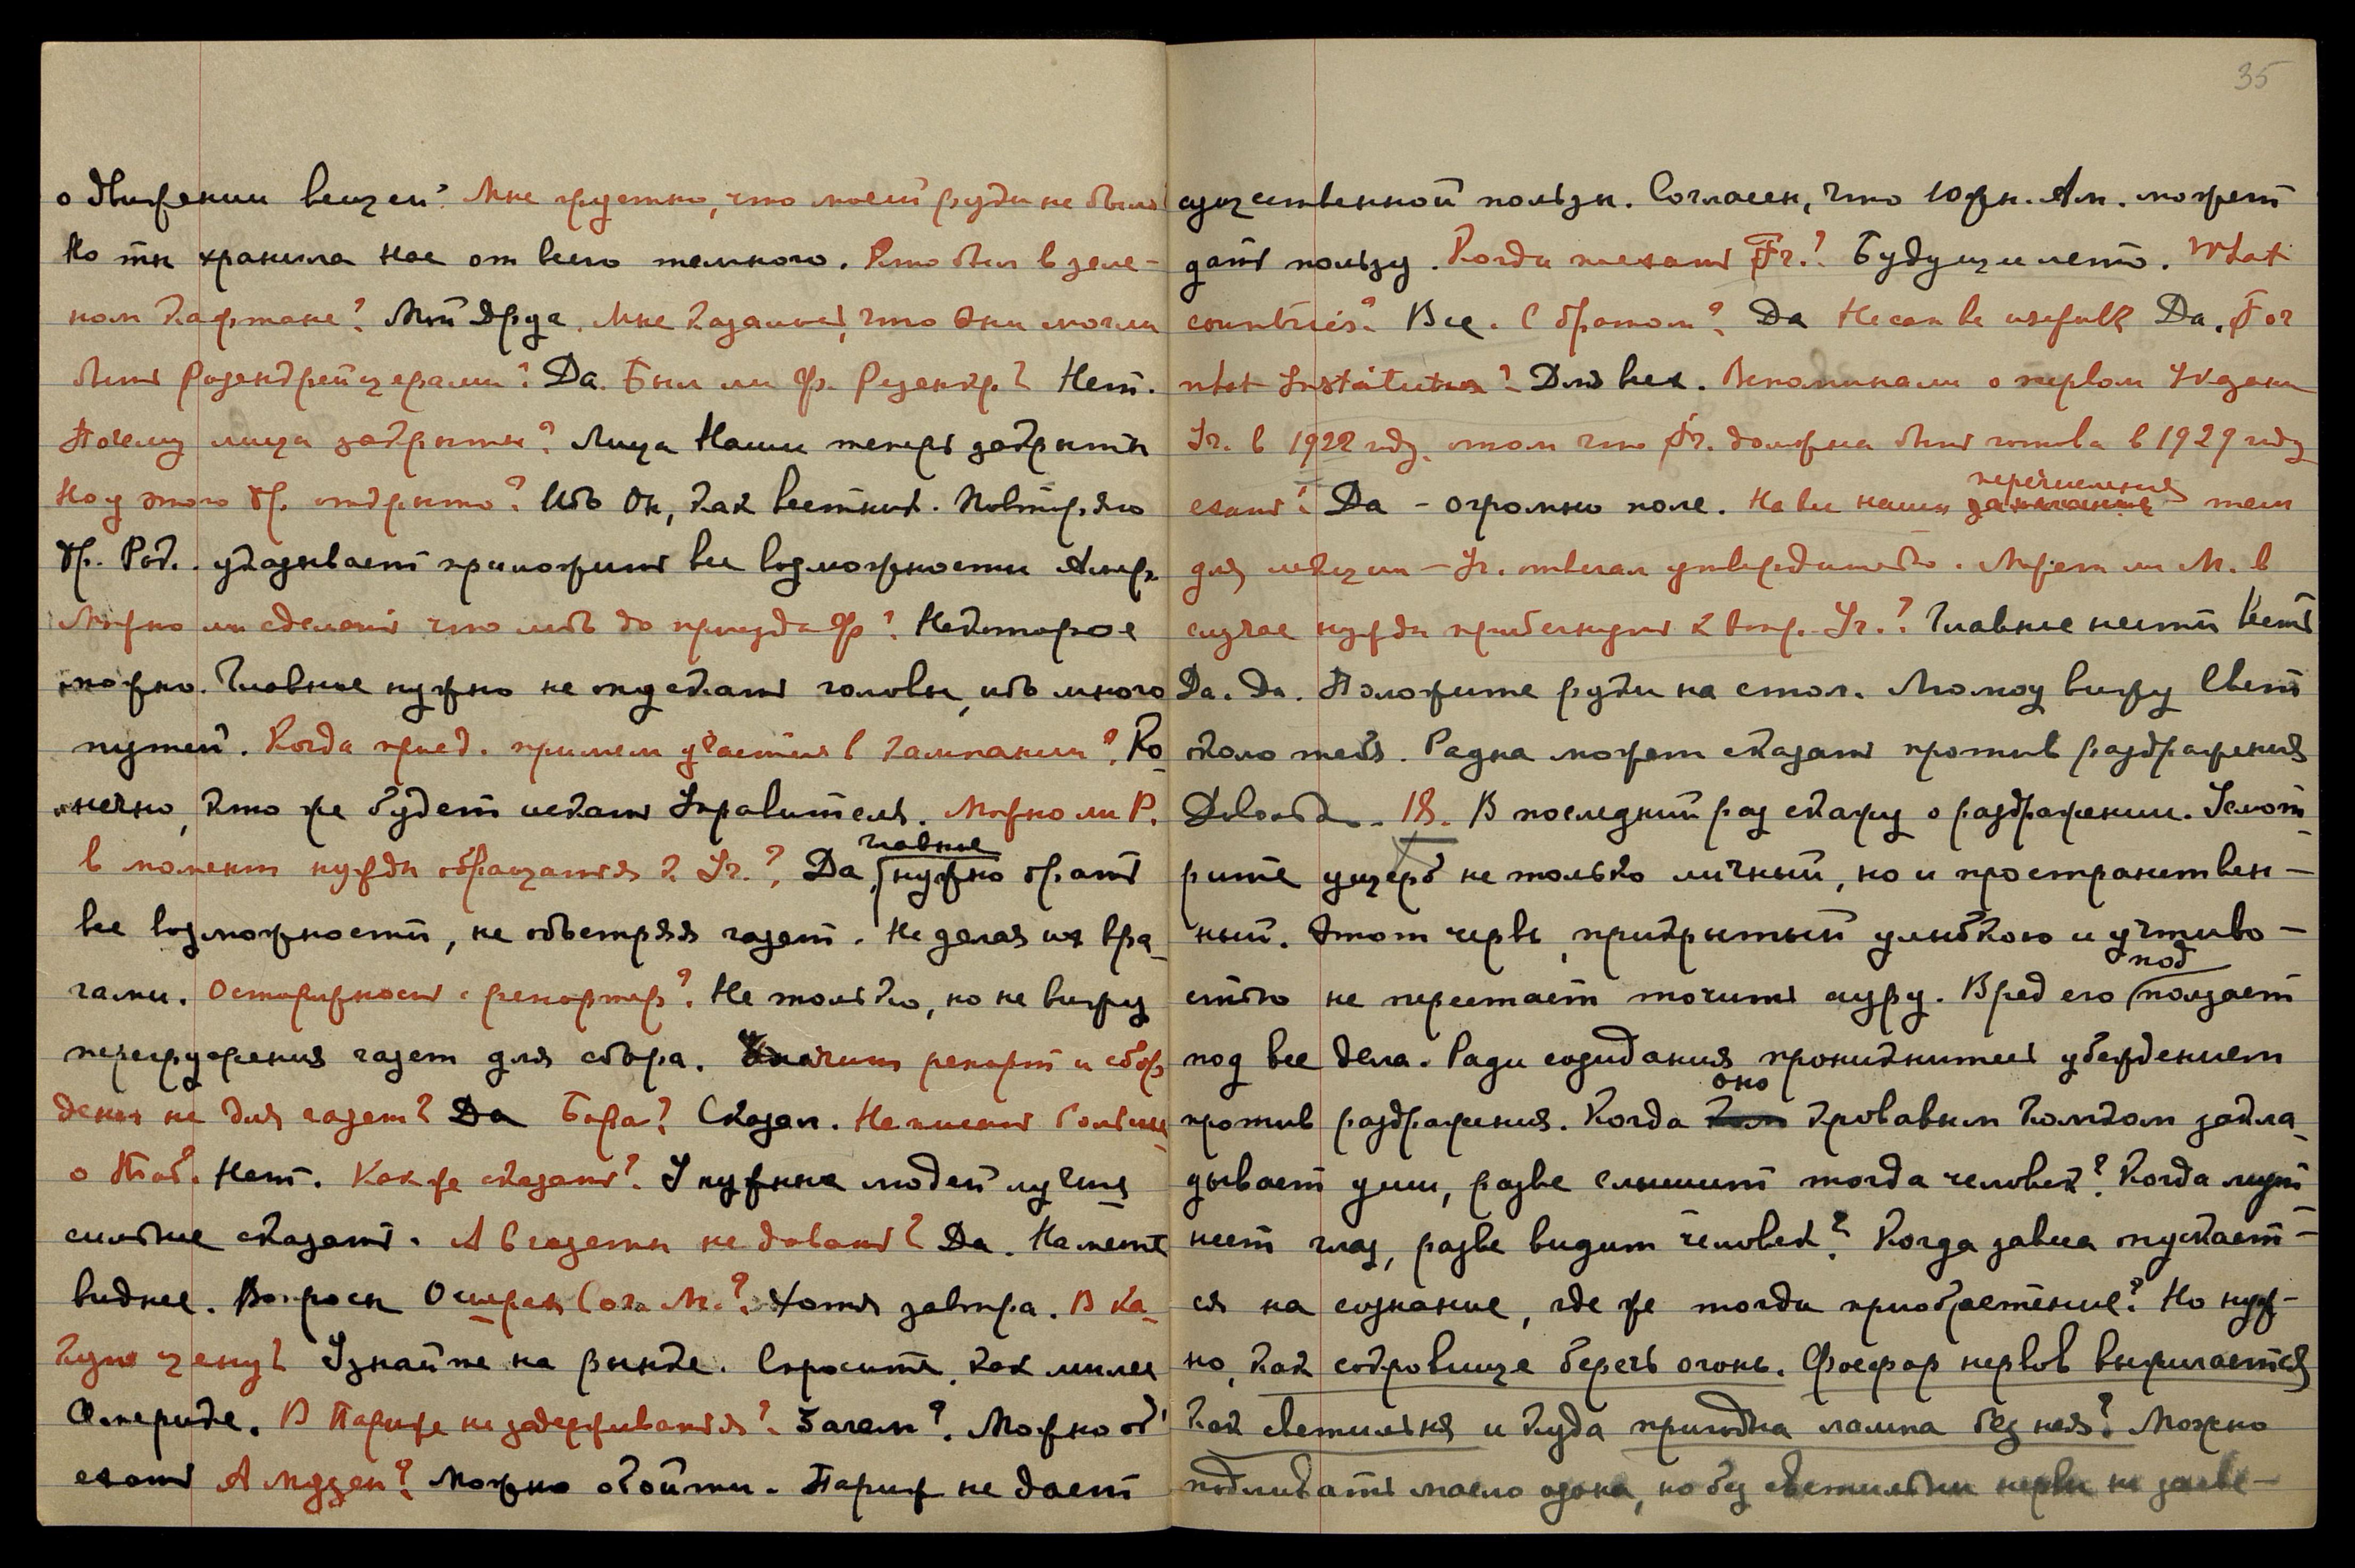 о движении вещей? Мне грустно, что моей руки не было
Но ты хранила нас от всего темного. Кто был в зеле-
ном кафтане? Мой Друг. Мне казалось, что они могли
быть розенкрейцерами? Да. Был ли Фр. Розенкр? Нет.
Почему лица закрыты? Лица Наши теперь закрыты
Но у этого Бр. открыто? Ибо Он, как вестник. Повторяю
Бр. Рак. указывает приложить все возможности Амер.
Можно ли сделать что либо до приезда Ф? Некоторое
можно. Главное нужно не опускать головы, ибо много
путей. Когда приед. примем участие в кампании? Ко-
нечно, кто же будет искать Правителя. Можно ли Р.
в момент нужды обращаться к Уч.? Да, главное нужно брать
все возможности, не обостряя газет. Не делая их вра-
гами. Осторожность с репортер? Не только, но не вижу
перегружения газет для сбора. Значит репорт и сбор
денег не для газет? Да Бора? Сказал. Не писать больше
о Таб. Нет. Как же сказать? У нужных людей лучше
сильнее сказать. А в газеты не давать? Да. На месте
виднее. Вопросы М.? Хотя завтра. В ка-
кую цену? Узнайте на рынке. Спросите, как милее
Америке. В Париже не задерживаться? Зачем? Можно об'
ехать А музеи? Можно обойти. Париж не дает
35
существенной пользы. Согласен, что Южн. Ам. может
дать пользу. Когда ехать Fr.? Будущее лето. What
countries? Все. С братом? Да He can be useful? Да. For
what Institution? Для всех. Вспоминали о первом Указании
Уч. в 1922 году. о том что Fr. должна быть готова в 1929 году
ехать? Да - огромно поле. На все наши перечисления тем
для лекции — Уч. отвечал утвердительно. Может ли М. в
случае нужды прибегнуть к Уч.? Главное нести Весть
Да. Да. Положите руки на стол. Молюу вижу Свет
около тебя. Радна может сказать против раздражения
Довольно. 18. В последний раз скажу о раздражении. Усмот-
рите ущерб не только личный, но и пространствен-
ный. Этот червь, прикрытый улыбкою и учтиво-
стью не перестает точить ауру. Вред его подползает
под все дела. Ради созидания проникнитесь убеждением
против раздражения. Когда оно кровавым комком закла-
дывает уши, разве слышит тогда человек? Когда мут-
неет глаз, разве видит человек? Когда завеса опускает-
ся на сознание, где же тогда приобретение? Но нуж-
но, как сокровище беречь огонь. Фосфор нервов выжигается
как светильня и куда пригодна лампа без нея? Можно
подливать масло озона, но без светильни нервы не засве-